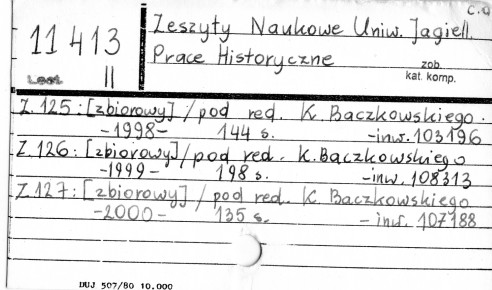 C.D
Zeszyty Naukowe Uniw. Jagiell.
11413
Prace Historyczne
zob.
kat. komp.
II
Z. 125: [zbiorowy] / pod red. K. Baczkowskiego.
-1998- 144 s. -inw. 103196
Z. 126: [zbiorowy] / pod red. K. Baczkowskiego
-1999- 198 s. -inw. 108313
Z. 127: [zbiorowy] / pod red. K. Baczkowskiego
-2000- 135 s. - inw. 107188
DUJ 507/80 10.000